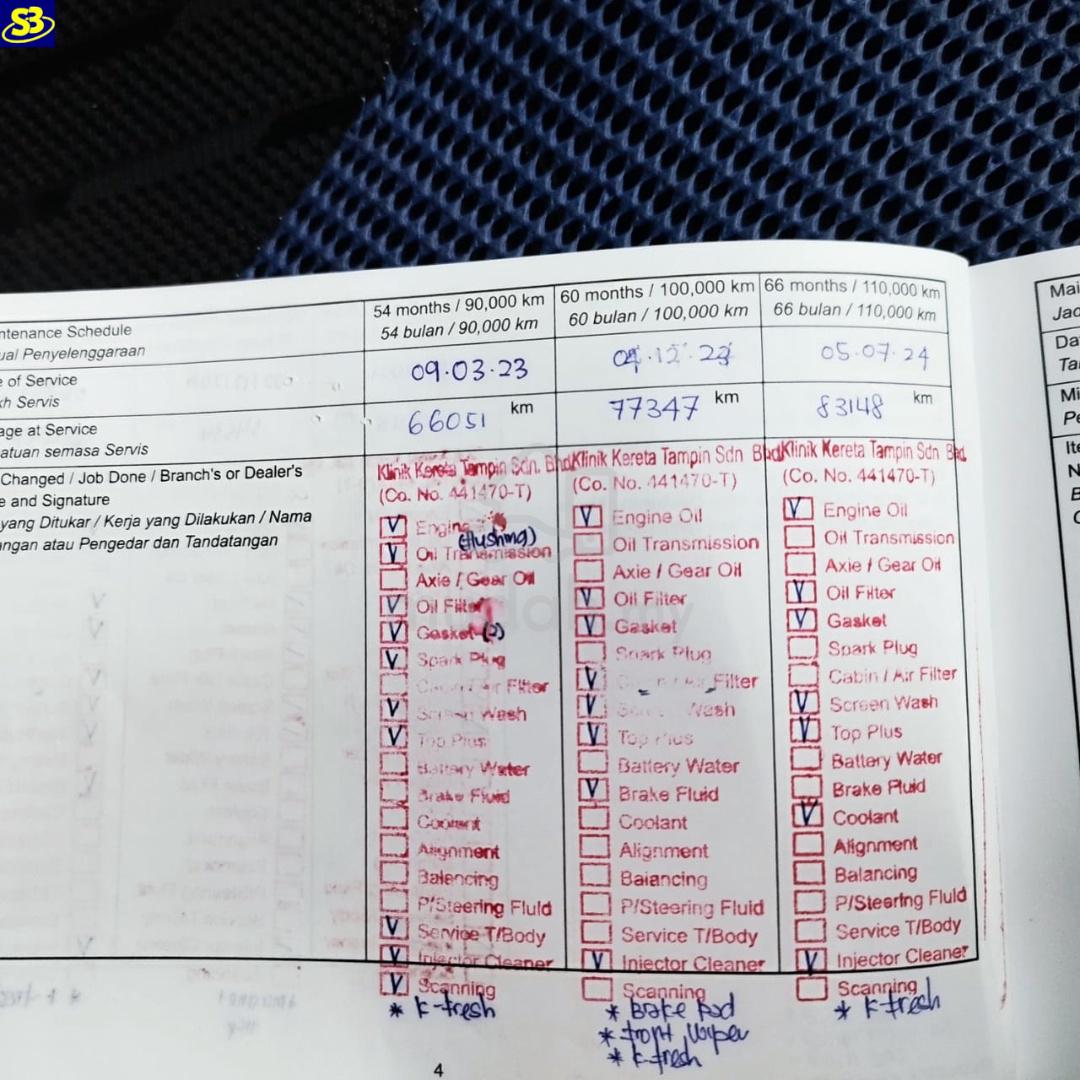 S3
54 months / 90,000 km
54 bulan / 90,000 km
60 months / 100,000 km
60 bulan / 100,000 km
66 months / 110,000 km
66 bulan / 110,000 km
ntenance Schedule
ual Penyelenggaraan
e of Service
kh Servis
09.03.23
12
05.07.24
age at Service
atuan semasa Servis
66051 km
77347 km
83148 km
Changed / Job Done / Branch's or Dealer's
e and Signature
yang Ditukar / Kerja yang Dilakukan / Nama
angan atau Pengedar dan Tandatangan
Klinik Kereta Tampin Sdn. Bhd
(Co. No. 441470-T)
V Engine
(flushing)
V Oil Transmission
Axie / Gear Oil
V Oil Filter
V Gasket (2)
V Spark Plug
Filter
V Screen Wash
V Top Plus
Battery Water
Brake Fluid
Coolant
Alignment
Balancing
P/Steering Fluid
V Service T/Body
V Injector Cleaner
V Scanning
* K-fresh
Klinik Kereta Tampin Sdn Bhd
(Co. No. 441470-T)
V Engine Oil
Oil Transmission
Axie / Gear Oil
V Oil Filter
V Gasket
Spark Plug
V Filter
V Wash
V Top Plus
Battery Water
V Brake Fluid
Coolant
Alignment
Balancing
P/Steering Fluid
Service T/Body
V Injector Cleaner
Scanning
* Brake Pad
* front wiper
* K-fresh
Klinik Kereta Tampin Sdn Bhd
(Co. No. 441470-T)
V Engine Oil
Oil Transmission
Axie / Gear Oil
V Oil Filter
V Gasket
Spark Plug
Cabin / Air Filter
V Screen Wash
V Top Plus
Battery Water
Brake Fluid
V Coolant
Alignment
Balancing
P/Steering Fluid
Service T/Body
V Injector Cleaner
Scanning
* K-fresh
4
Mai
Jad
Da
Ta
Mi
Pe
Ite
N